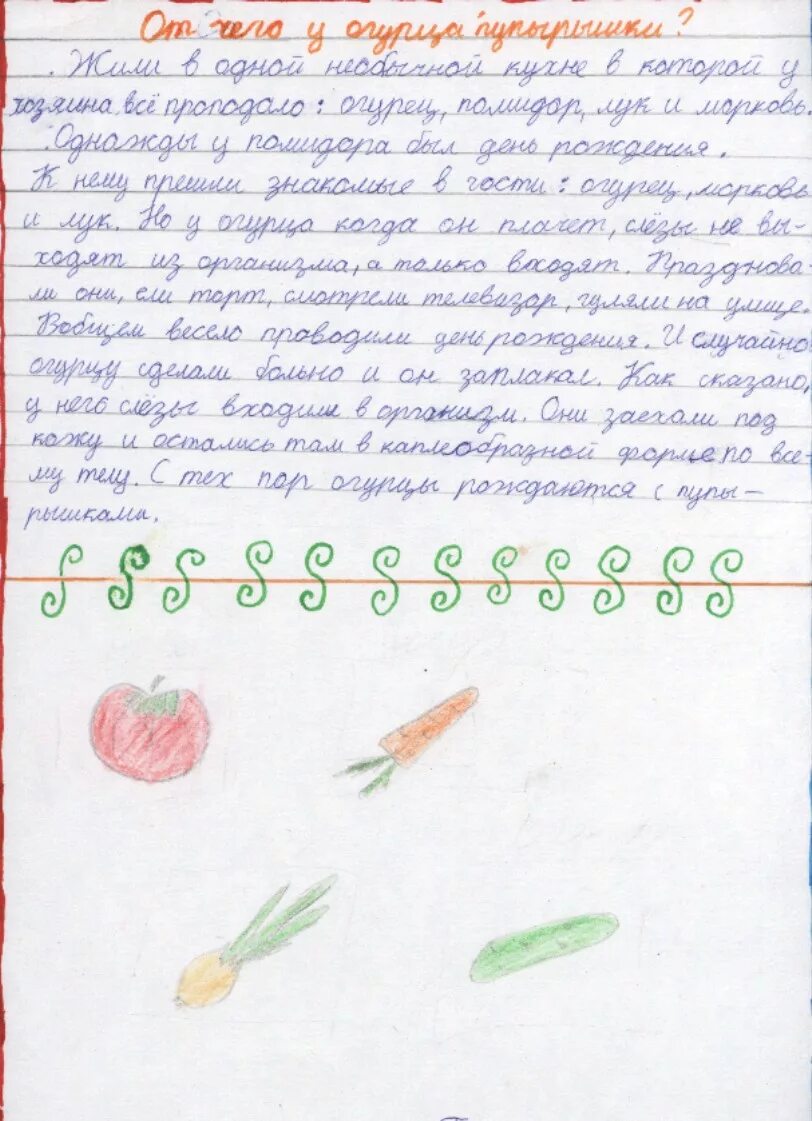 От чего у огурца пупырышки?
Жили в одной необычной кухне в которой у
хозяина всё проподало: огурец, помидор, лук и морковь.
Однажды у помидора был день рождения.
К нему прешли знакомые в гости: огурец, морковь
и лук. Но у огурца когда он плачет, слёзы не вы-
ходят из организма, а только входят. Празднова-
ли они, ели торт, смотрели телевизор, гуляли на улице.
Вобщем весело проводили день рождения. И случайно
огурцу сделали больно и он заплакал. Как сказано,
у него слёзы входили в организм. Они заехали под
кожу и остались там в каплеобразной форме по все-
му телу. С тех пор огурцы рождаются с пупы-
рышками.